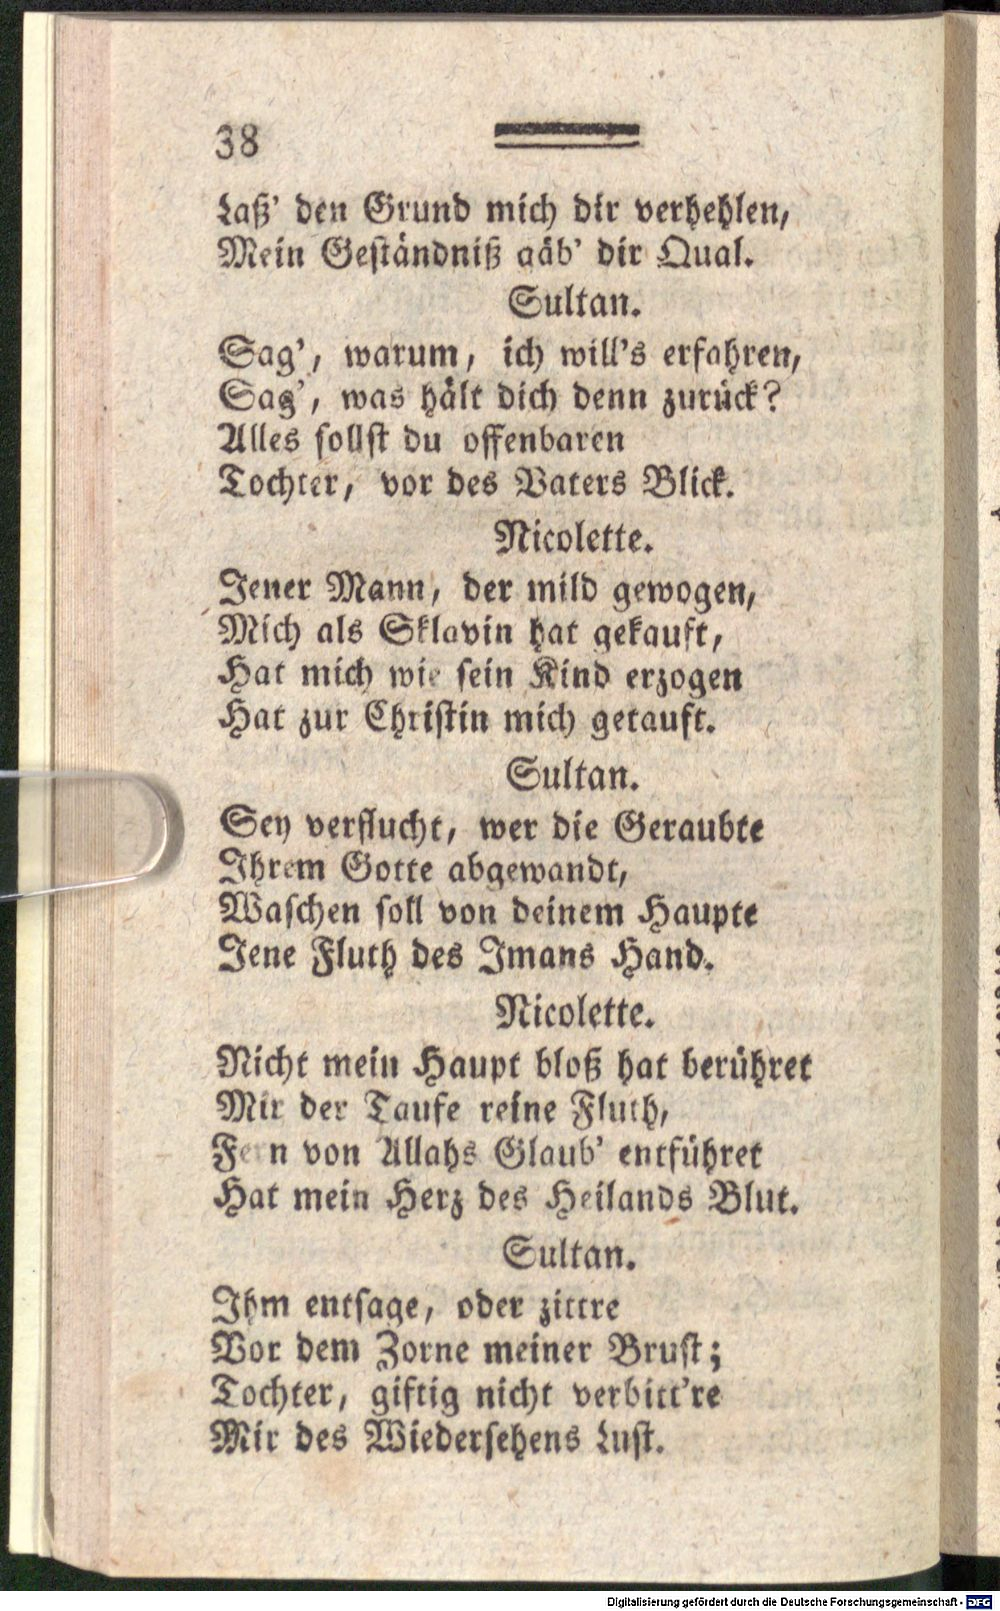 38
Laß' den Grund mich dir verhehlen,
Mein Geständniß gäb' dir Qual.
Sultan.
Sag', warum, ich will's erfahren,
Sag', was hält dich denn zurück?
Alles sollst du offenbaren
Tochter, vor des Vaters Blick.
Nicolette.
Jener Mann, der mild gewogen,
Mich als Sklavin hat gekauft,
Hat mich wie sein Kind erzogen
Hat zur Christin mich getauft.
Sultan.
Sey verflucht, wer die Geraubte
Ihrem Gotte abgewandt,
Waschen soll von deinem Haupte
Jene Fluth des Imans Hand.
Nicolette.
Nicht mein Haupt bloß hat berühret
Mir der Taufe reine Fluth,
Fern von Allahs Glaub' entführet
Hat mein Herz des Heilands Blut.
Sultan.
Ihm entsage, oder zittre
Vor dem Zorne meiner Brust;
Tochter, giftig nicht verbitt're
Mir des Wiedersehens Lust.
Digitalisierung gefördert durch die Deutsche Forschungsgemeinschaft - DFG